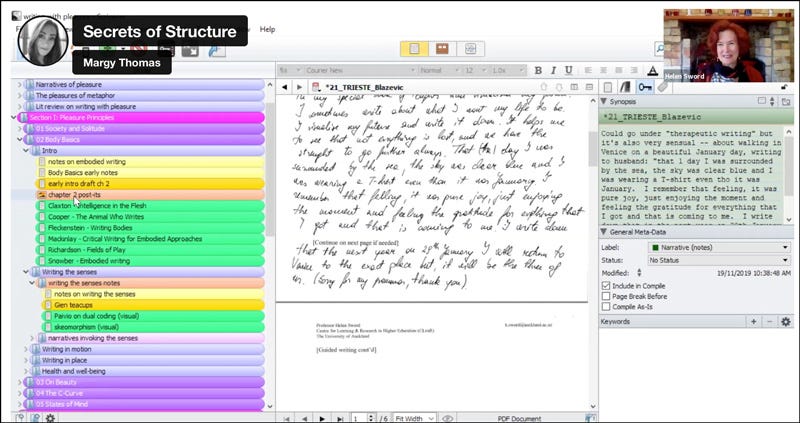 writing with pleasure
Secrets of Structure
Margy Thomas
Help
Helen Sword
Narratives of pleasure
The pleasures of metaphor
Lit review on writing with pleasure
Section I: Pleasure Principles
01 Society and Solitude
02 Body Basics
Intro
notes on embodied writing
Body Basics early notes
early intro draft ch 2
chapter 2 post-its
Claxton - Intelligence in the Flesh
Cooper - The Animal Who Writes
Fleckenstein - Writing Bodies
Mackinlay - Critical Writing for Embodied Approaches
Richardson - Fields of Play
Snowber - Embodied writing
Writing the senses
writing the senses notes
notes on writing the senses
Gien teacups
Paivio on dual coding (visual)
skeomorphism (visual)
narratives invoking the senses
Writing in motion
Writing in place
Health and well-being
03 On Beauty
04 The C-Curve
05 States of Mind
Courier New Normal 12 1.0x B I U
*21_TRIESTE_Blazevic
I sometimes write about what I want my life to be.
I visualise my future and write it down. It helps me
to see that not anything is lost, and we have the
straught to go further always. That 1 day I was
surrounded by the sea, the sky was clear blue and I
was wearing a T-shirt even than it was January. I
remember that felling, it was pure joy, just enjoying
the moment and feeling the gratitude for anything that
I got and that is coming to me. I write down
[Continue on next page if needed]
that the next year on 20th January I will return to
Venice to the exact place but, it will be the three of
us. (Sorry for my grammar, thank you)
Professor Helen Sword
Centre for Learning & Research in Higher Education (CLeaR)
The University of Auckland
h.sword@auckland.ac.nz
[Guided writing cont'd]
1 / 6 Fit Width PDF Document
Synopsis
*21_TRIESTE_Blazevic
Could go under "therapeutic writing" but
it's also very sensual -- about walking in
Venice on a beautiful January day, writing
to husband: "that 1 day I was surrounded
by the sea, the sky was clear blue and I
was wearing a T-shirt even tho it was
January. I remember that feeling, it was
pure joy, just enjoying the moment and
feeling the gratitude for everything that
I got and that is coming to me. I write
General Meta-Data
Label: Narrative (notes)
Status: No Status
Modified: 19/11/2019 10:38:48 AM
Include in Compile
Page Break Before
Compile As-Is
Keywords